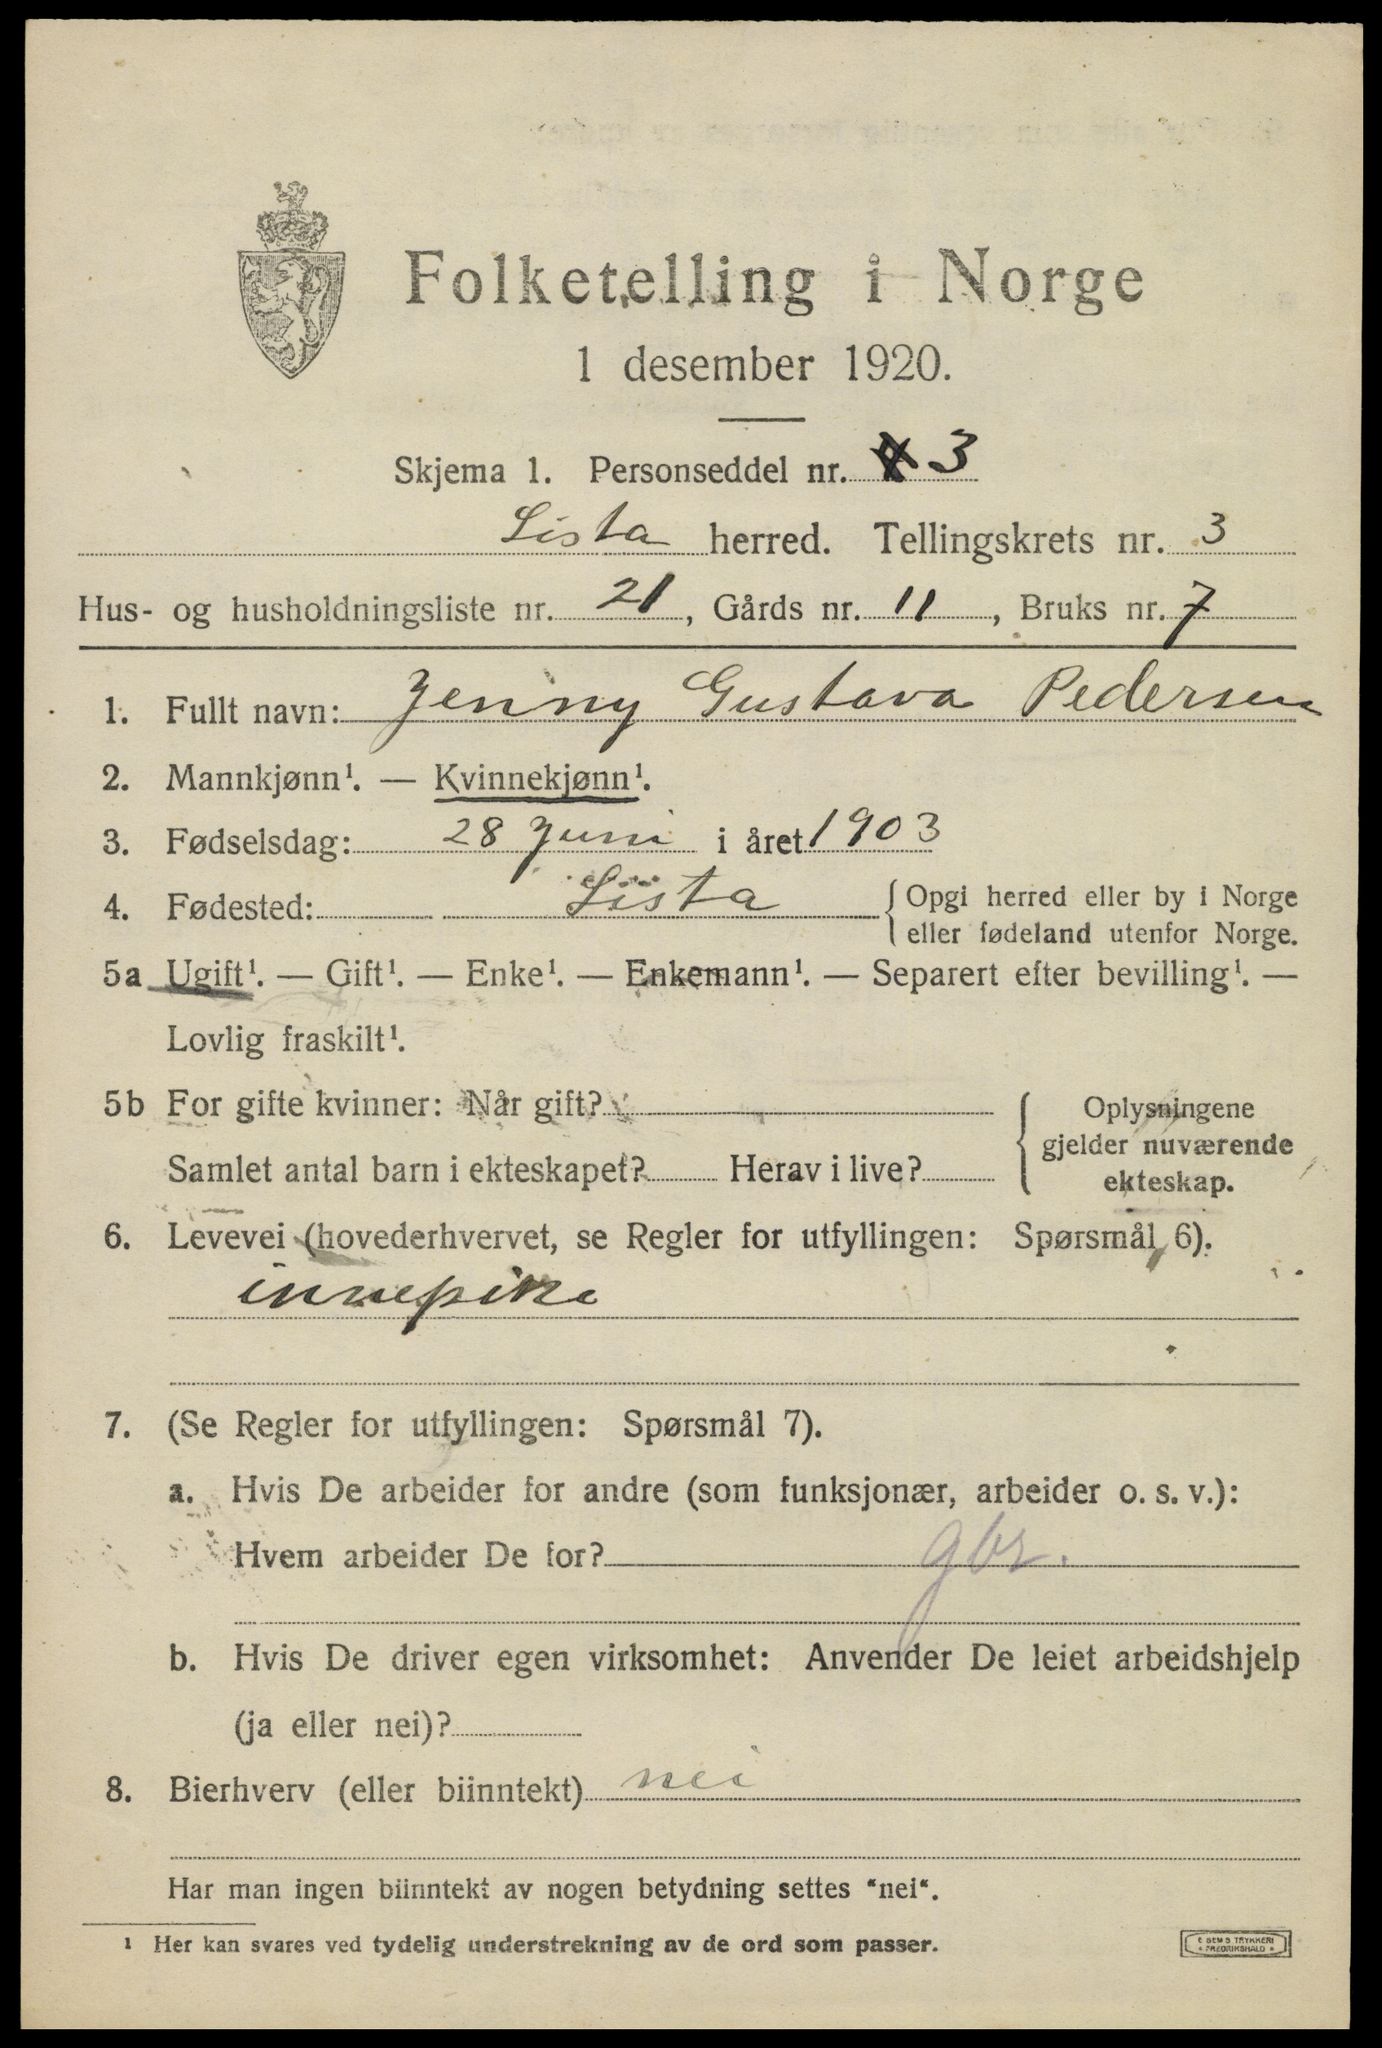 Folketelling i Norge
1 desember 1920.
Skjema 1. Personseddel nr. 3
Lista herred. Tellingskrets nr. 3
Hus- og husholdningsliste nr. 21, Gårds nr. 11, Bruks nr. 7
1. Fullt navn: Jenny Gustava Pedersen
2. Mannkjønn¹. — Kvinnekjønn¹.
3. Fødselsdag: 28 Juni i året 1903
4. Fødested: Lista {Opgi herred eller by i Norge
eller fødeland utenfor Norge.
5a Ugift¹. — Gift¹. — Enke¹. — Enkemann¹. — Separert efter bevilling¹. —
Lovlig fraskilt¹.
5b For gifte kvinner: Når gift?
Samlet antal barn i ekteskapet? Herav i live?
Oplysningene
gjelder nuværende
ekteskap.
6. Levevei (hovederhvervet, se Regler for utfyllingen: Spørsmål 6).
innepike
7. (Se Regler for utfyllingen: Spørsmål 7).
a. Hvis De arbeider for andre (som funksjonær, arbeider o. s. v.):
Hvem arbeider De for? gbr.
b. Hvis De driver egen virksomhet: Anvender De leiet arbeidshjelp
(ja eller nei)?
8. Bierhverv (eller biinntekt) nei
Har man ingen biinntekt av nogen betydning settes "nei".
¹ Her kan svares ved tydelig understrekning av de ord som passer.
E SEMS TRYKKERI
FREDRIKSHALD